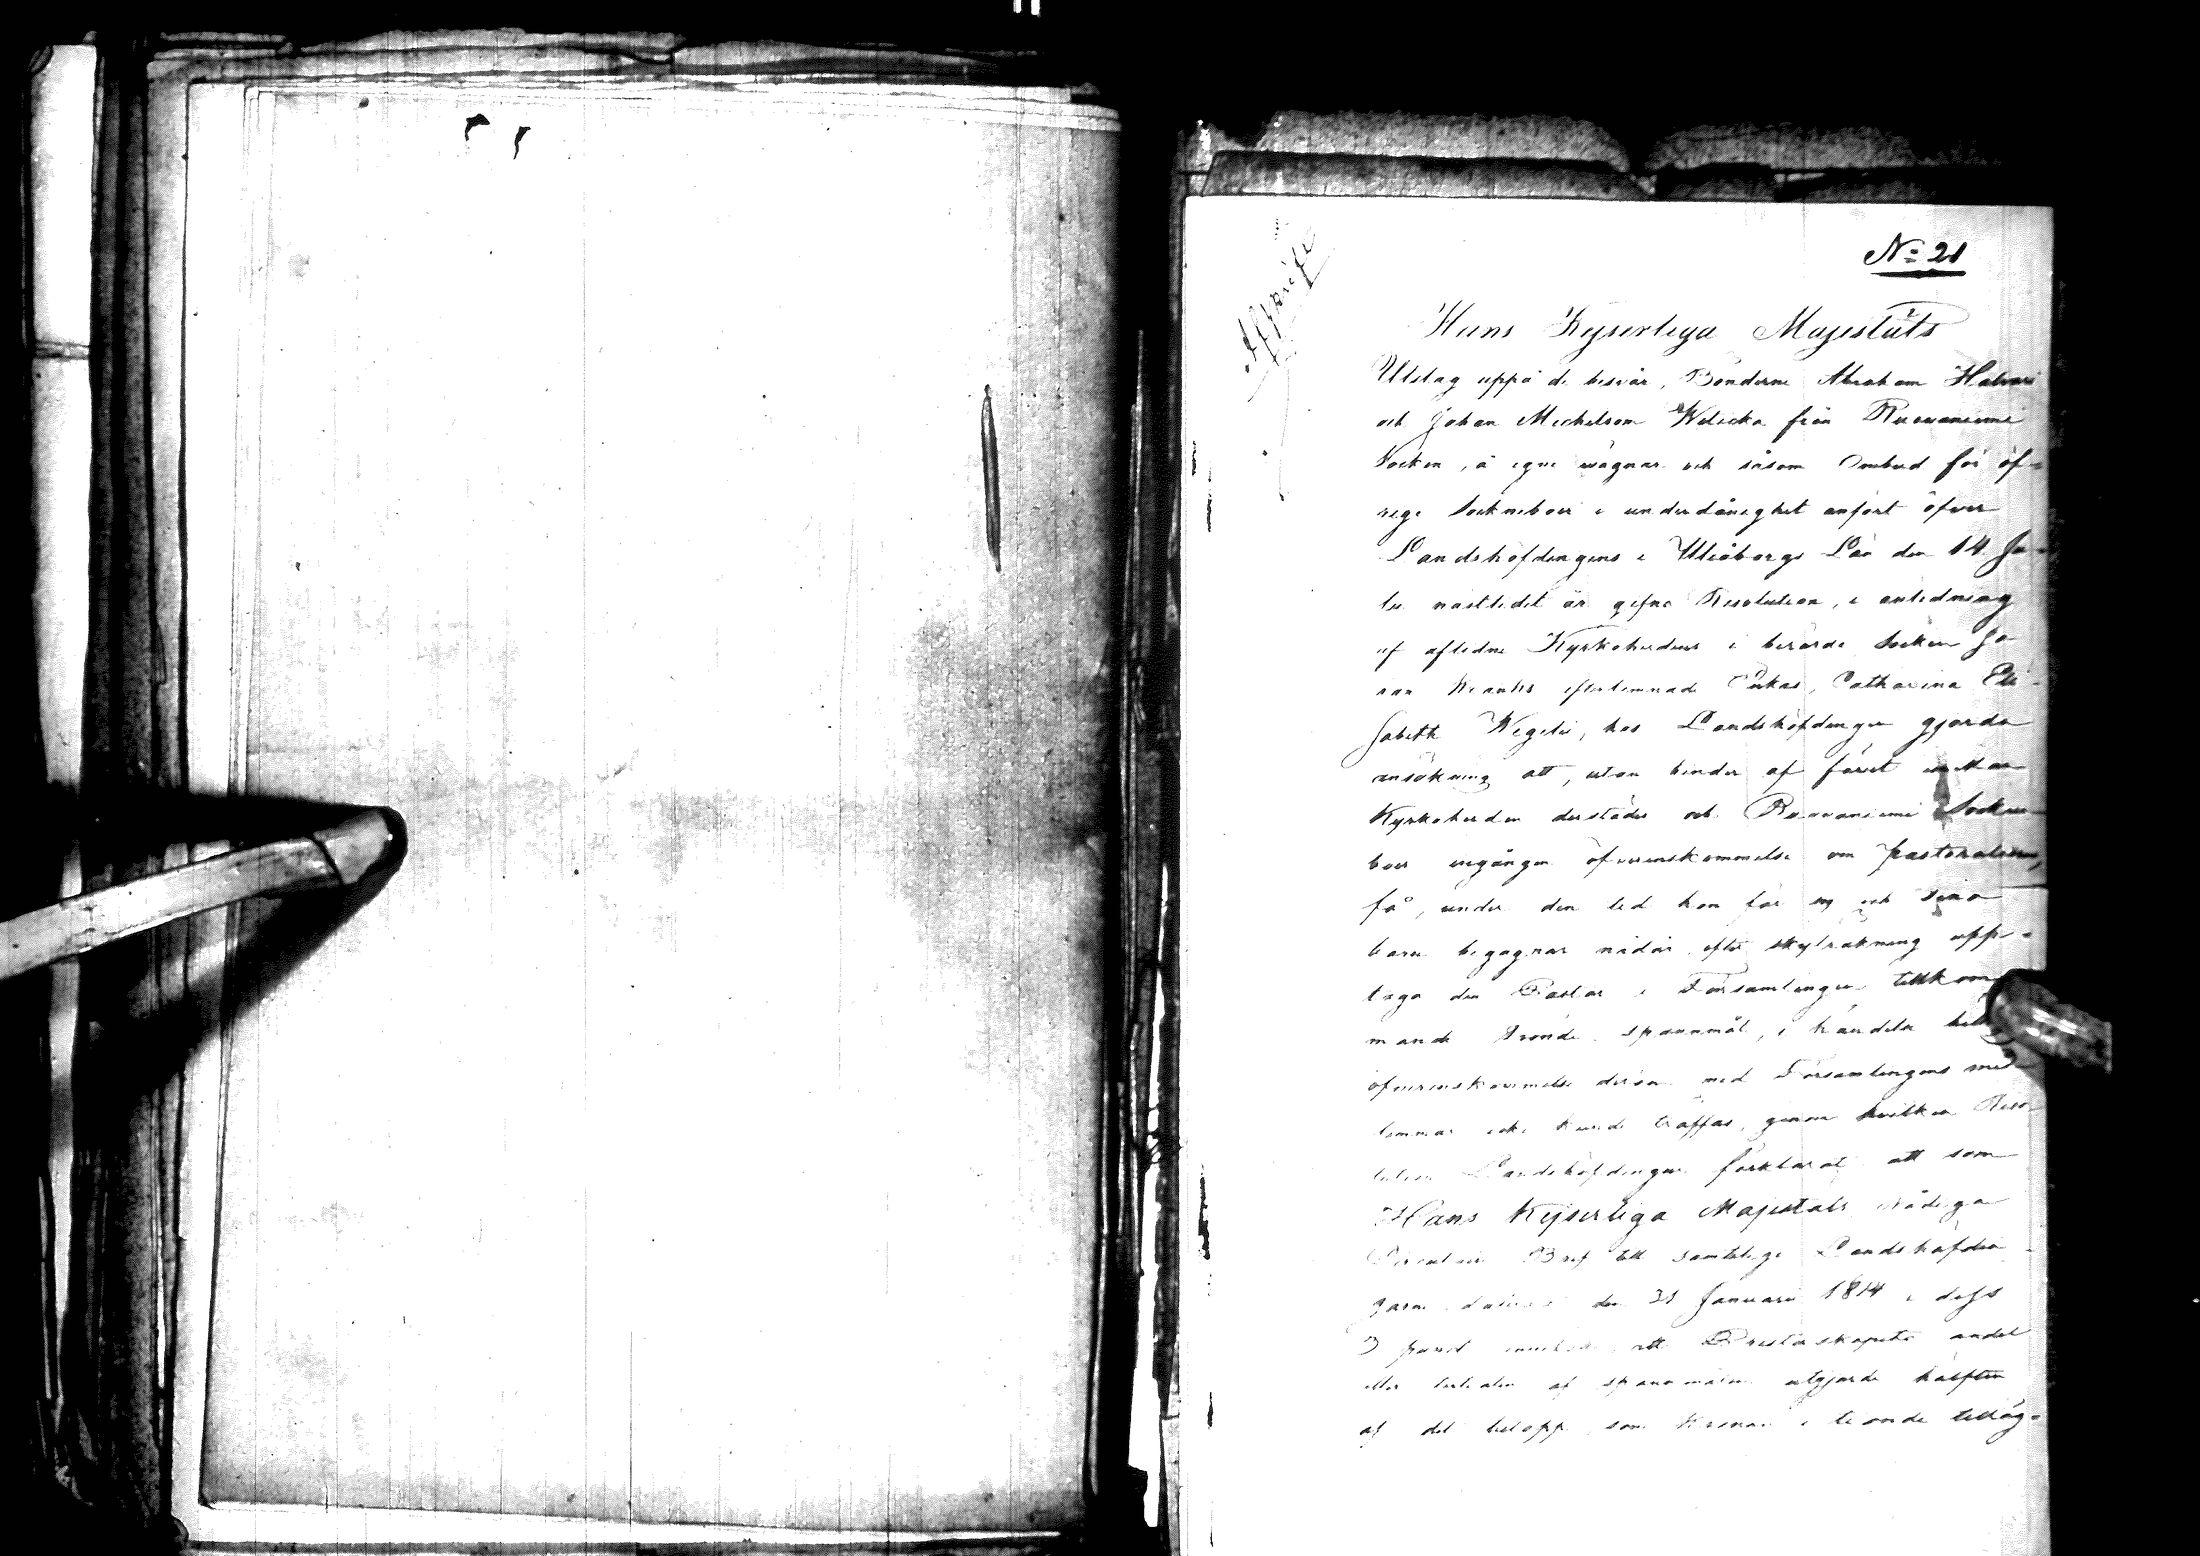 No 21
Afskrift
Hans Kejserliga Majestäts
Utslag uppå de besvär, Bönderne Abraham Halvari
och Johan Michelsson Welicka från Rovaniemi
Socken, å egne wägnar och såsom Ombud för öf-
rige Sockneboer i underdånighet anfört öfver
Landshöfdingens i Uleåborgs Län den 14 Ju-
lii nästledit år gifne Resolution, i anledning
af aflidne Kyrkoherdens i berörde Socken Jo-
han efterlemnade Enkas, Catharina Eli-
sabeth Wegelii, hos Landshöfdingen gjorda
ansökning att, utan hinder af förut mellan
Kyrkoherden derstädes och Rovaniemi Socken
boer ingången öfverenskommelse om pastoralierne,
få, under den tid hon för sig och sina
barn begagnar nådår, efter skylräkning upp-
taga den Pastor i Församlingen tillkom
mande tionde spannmål, i händelse
öfverenskommelse derom med Församlingens med-
lemmar icke kunde träffas, genom hvilken Reso-
lution Landshöfdingen förklarat att som
Hans Kejserliga Majestäts Nådiga
Circulair Bref till samtelige Landshöfdin-
garne daterat den 31 Januarii 1814 i dess
3 punct innehåller att Presterskapets andel
eller tertialen af spannmålen utgjorde hälften
af det belopp som Kronan i tionde tillåg-